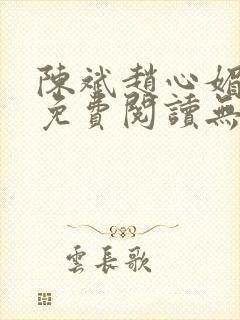 陳斌趙心媚
免費閱讀無
雲長歌